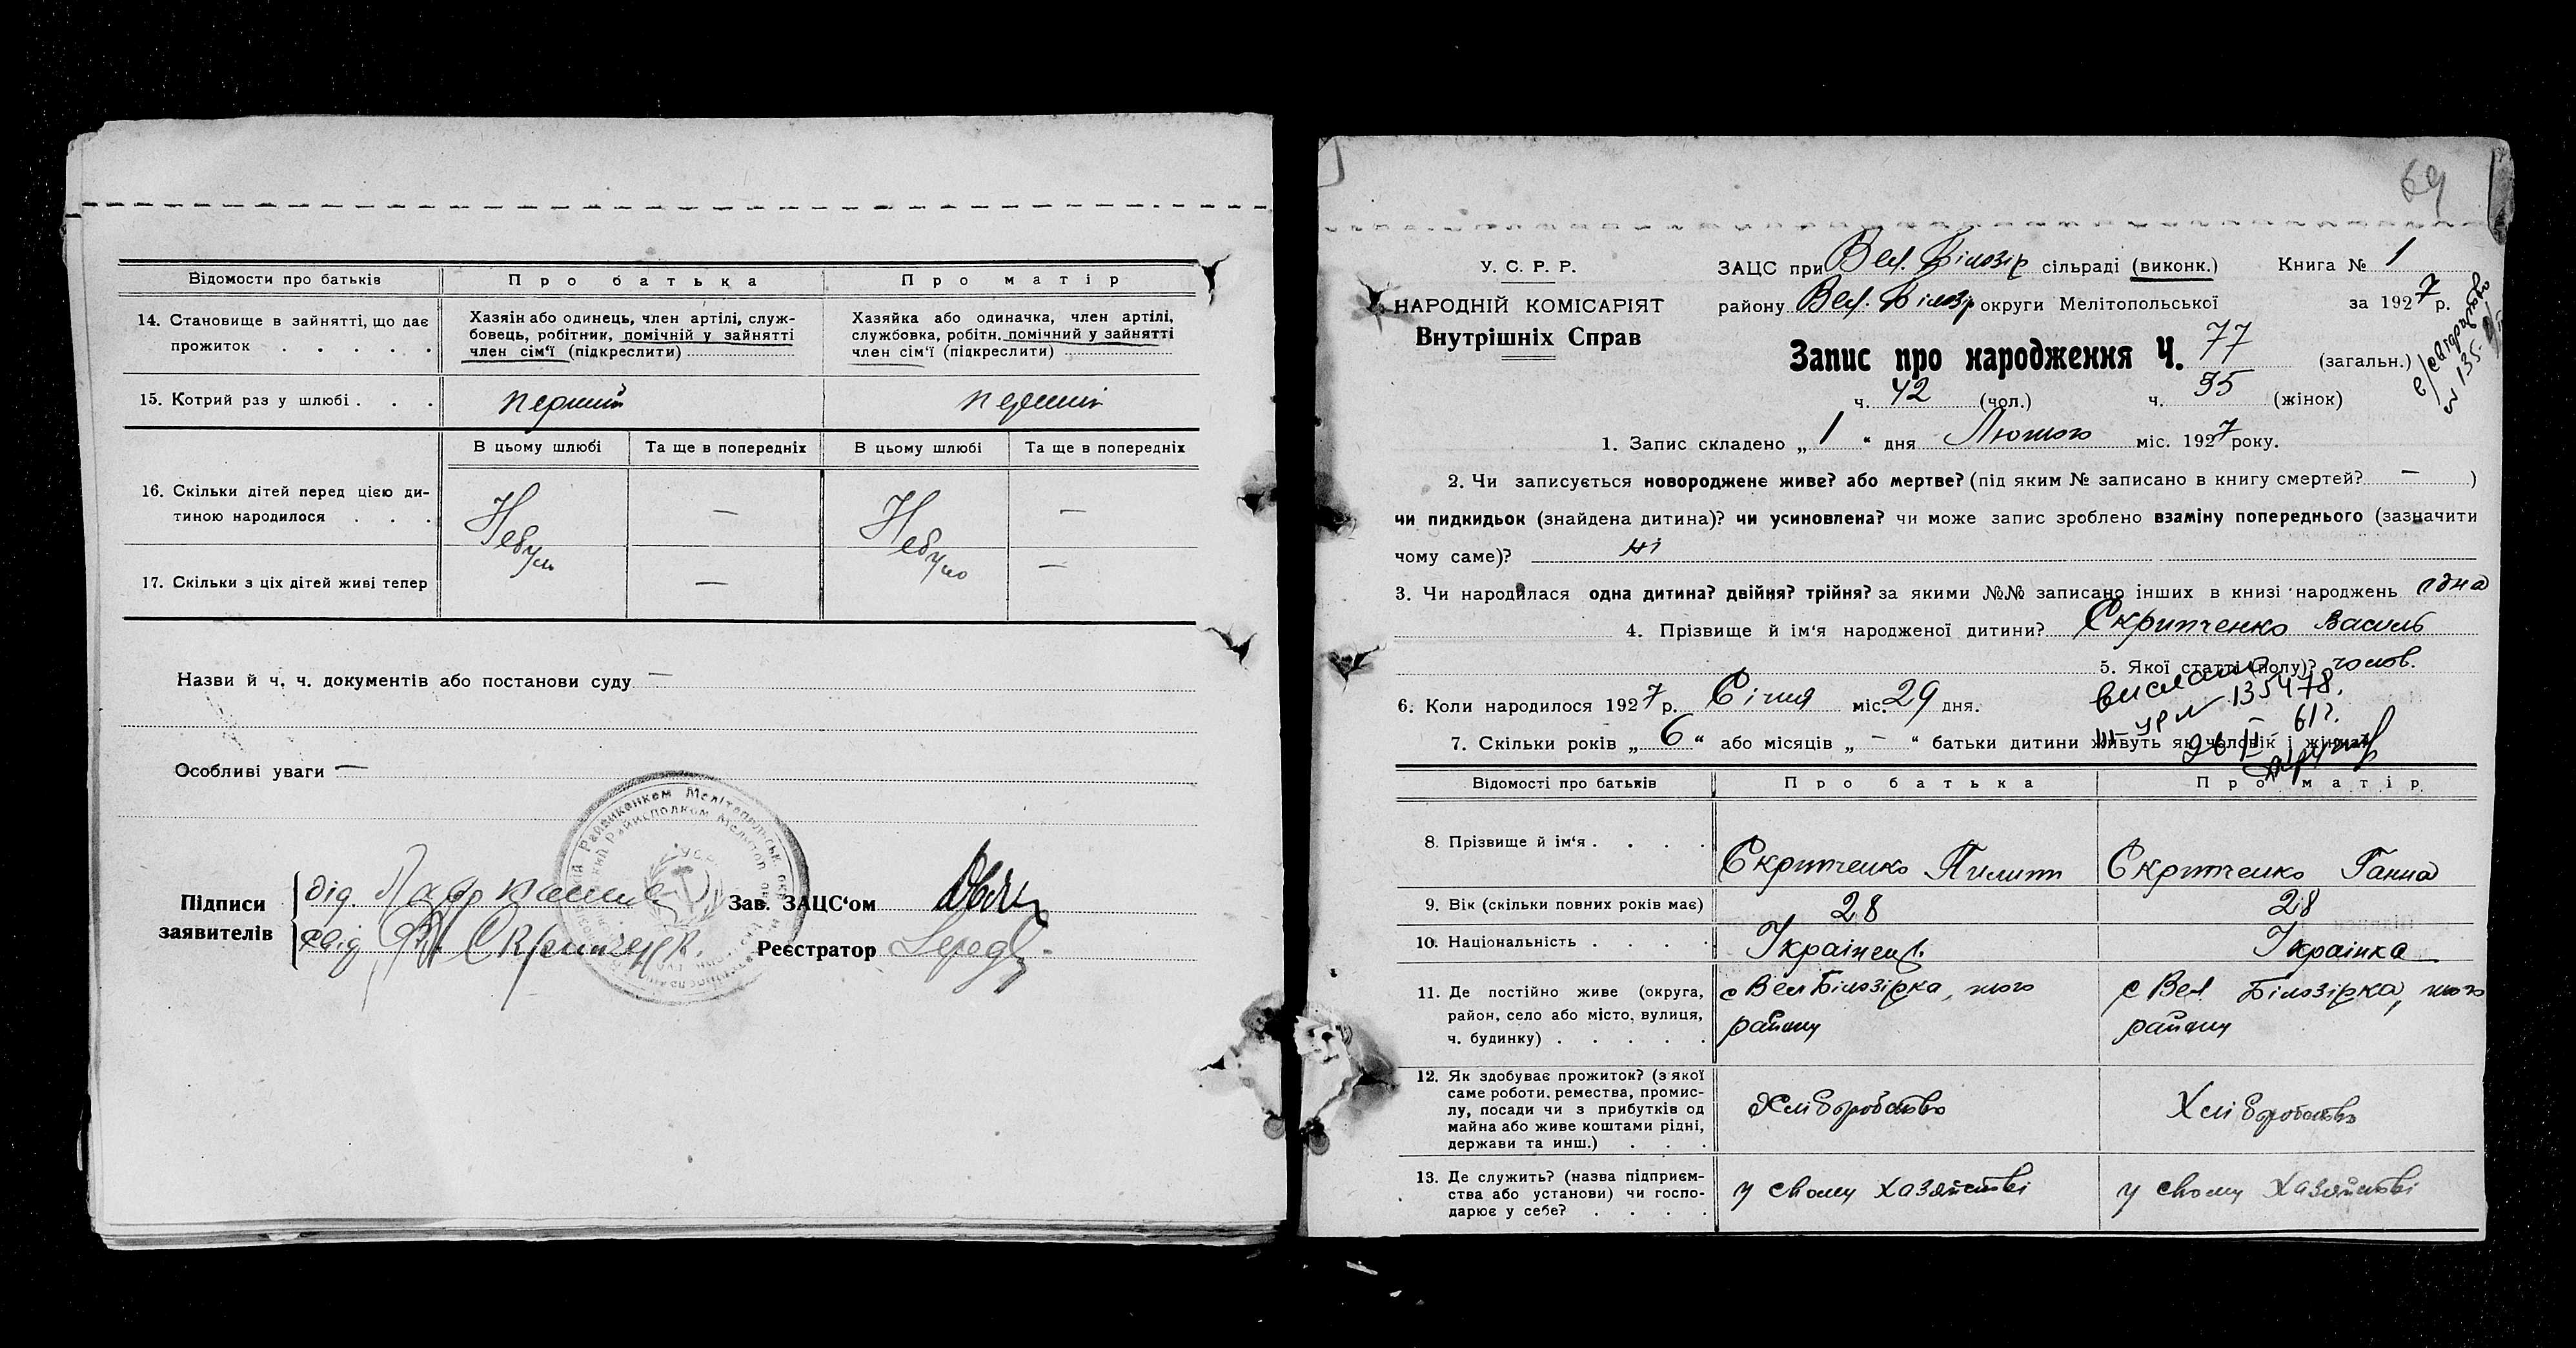 Відомости про батьків Про батька Про матір
14. Становище в зайнятті, що дає прожиток . . . . .
Хазяїн або одинець, член артілі, служ-
бовець, робітник, помічній у зайнятті
член сім'ї (підкреслити)
Хазяйка або одиначка, член артілі,
службовка, робітн. помічний у зайнятті
член сім'ї (підкреслити)
15. Котрий раз у шлюбі . . . перший перший
В цьому шлюбі Та ще в попередніх В цьому шлюбі Та ще в попередніх
16. Скільки дітей перед цією ди-
тиною народилося . . . Небуло — Небуло —
17. Скільки з ціх дітей живі тепер — —
Назви й ч. ч. документів або постанови суду —
Особливі уваги —
Підписи заявителів
дід.
Зав. ЗАЦС'ом
Реєстратор
69
У. С. Р. Р.
НАРОДНІЙ КОМІСАРІЯТ
Внутрішніх Справ
ЗАЦС при Вел. Білозір сільраді (виконк.) Книга № 1
району Вел. Білозір округи Мелітопольської за 1927 р.
Запис про народження Ч. 77 (загальн.)
ч. 42 (чол.) ч. 35 (жінок)
1. Запис складено „ 1 “ дня Лютого міс. 1927 року.
2. Чи записується новороджене живе? або мертве? (під яким № записано в книгу смертей? — )
чи пидкидьок (знайдена дитина)? чи усиновлена? чи може запис зроблено взаміну попереднього (зазначити
чому саме)? ні
3. Чи народилася одна дитина? двійня? трійня? за якими №№ записано інших в книзі народжень одна
4. Прізвище й ім'я народженої дитини? Скрипченко Василь
5. Якої статті (полу)? чолов.
6. Коли народилося 1927 р. Січня міс. 29 дня.
7. Скільки років „ 6 “ або місяців „ — “ батьки дитини живуть як чоловік і жінка?
135478.
Відомості про батьків Про батька Про матір
8. Прізвище й ім'я . . . . Скрипченко Пилип Скрипченко Ганна
9. Вік (скільки повних років має) 28 28
10. Національність . . . . Українец. Українка
11. Де постійно живе (округа,
район, село або місто, вулиця,
ч. будинку) . . . . .
с Вел Білозірка, того
району
с Вел Білозірка, того
району
12. Як здобуває прожиток? (з якої
саме роботи, ремества, промис-
лу, посади чи з прибутків од
майна або живе коштами рідні,
держави та инш.) . . .
Хліборобство Хліборобство
13. Де служить? (назва підприєм-
ства або установи) чи госпо-
дарює у себе? . . . .
у свому хазяйстві у свому хазяйстві